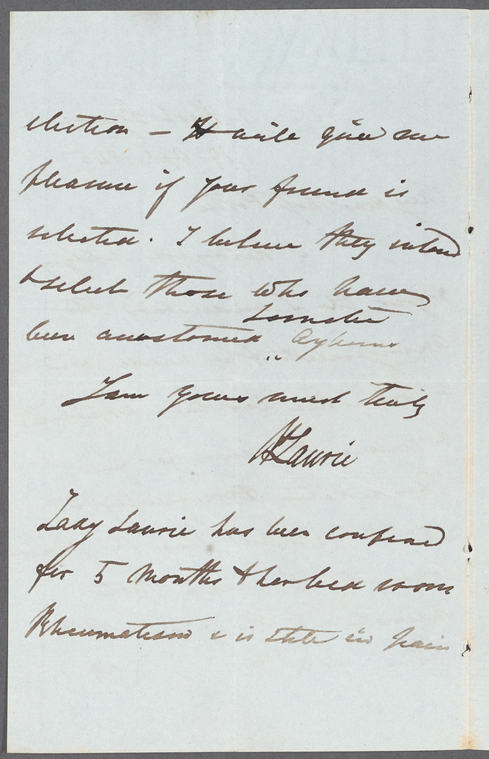 election – It will give me
pleasure if your friend is
selected. I believe they intend
to select those who have
been accustomed Lunatic
Asylums
I am yours most truly
Laurie
Lady Laurie has been confined
for 5 months to her bed room
Rheumatism & is still in pain